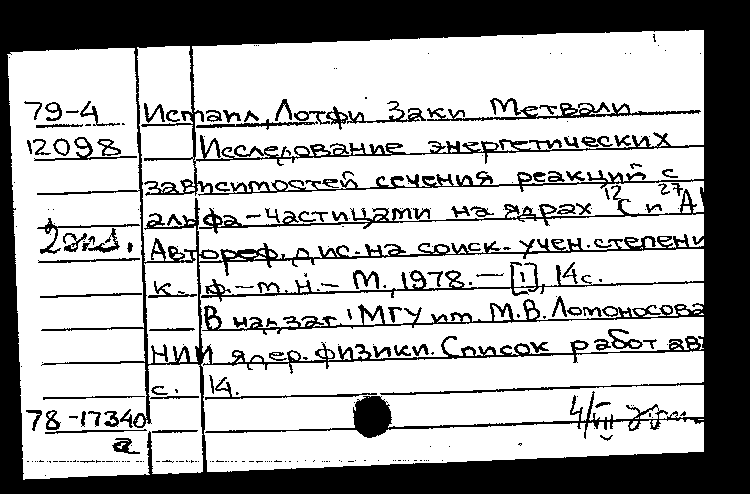 79-4 Исмаил, Лотфи Заки Метвали
12098 Исследование энергетических
зависимостей сечения реакций с
альфа-частицами на ядрах ¹²C и ²⁷Al
2 экз. Автореф. дис. на соиск. учен. степени
к. ф.-м. н. - М., 1978. - [1], 14с.
В надзаг.: МГУ им. М.В. Ломоносова
НИИ ядер. физики. Список работ авт
с. 14.
78-17340 4/VII
а